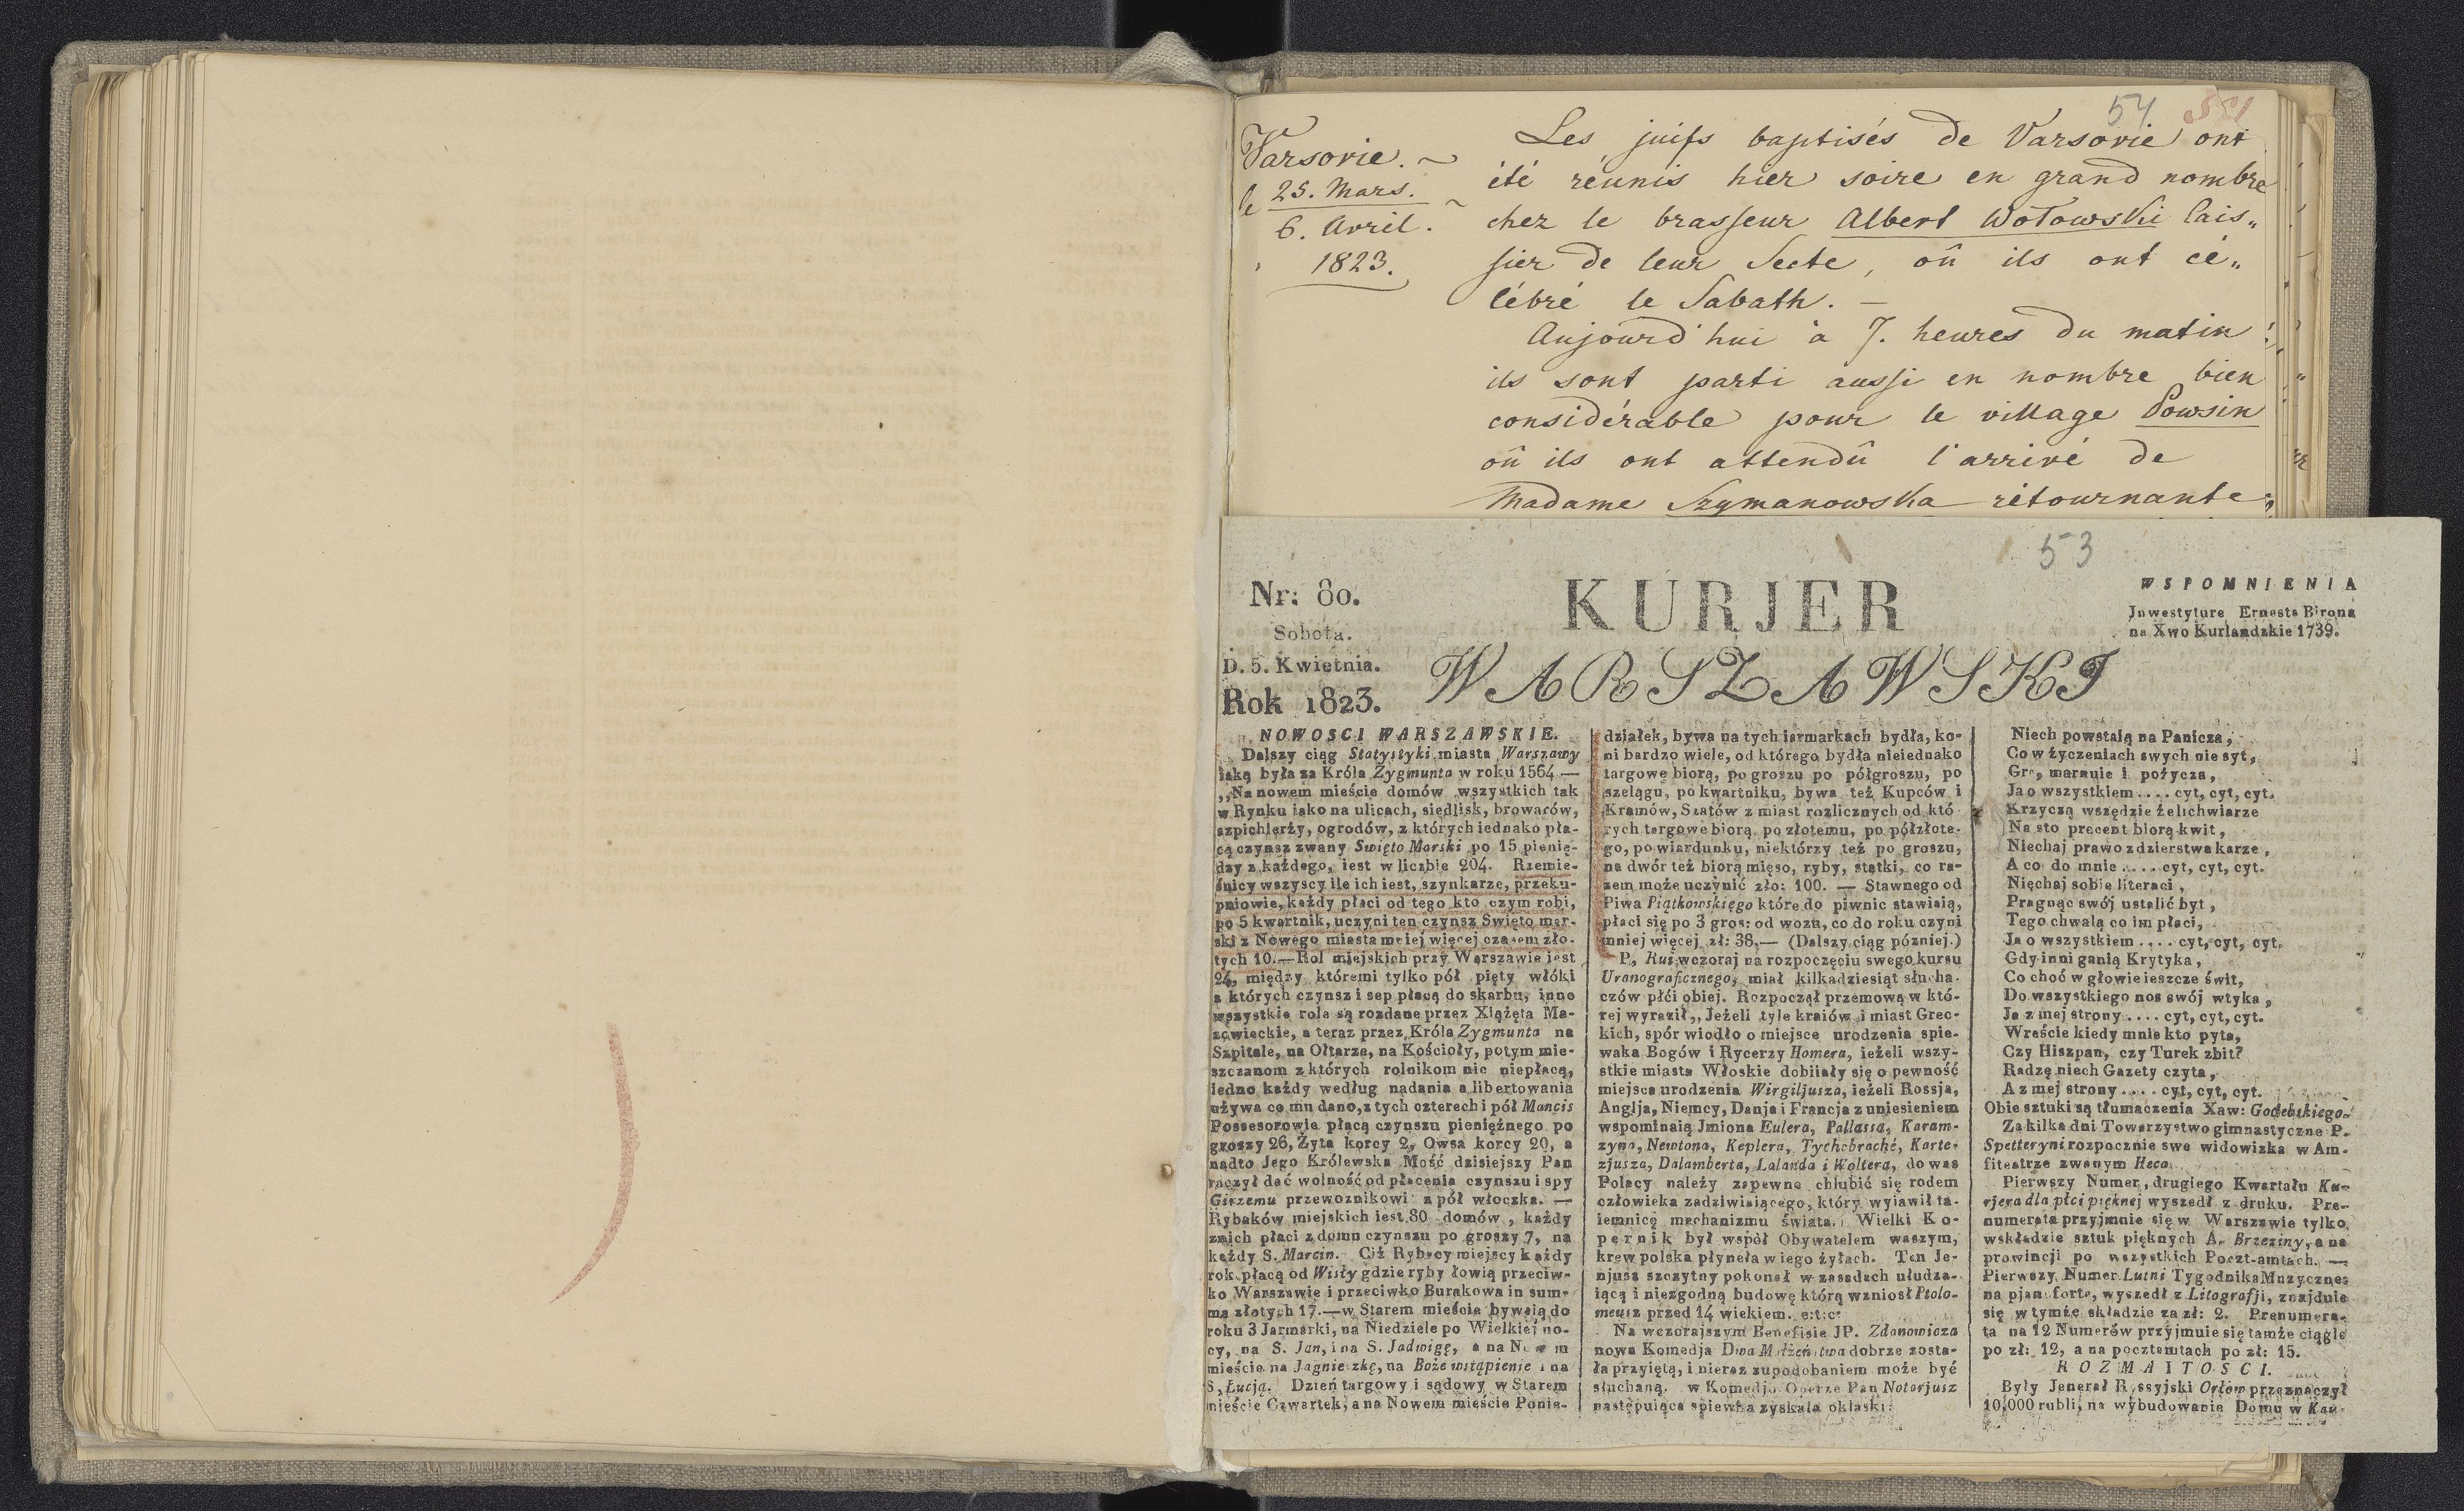 54
Varsovie.
le 25. Mars.
6. Avril.
1823.
Les juifs baptisés de Varsovie ont
été réunis hier soire en grand nombre
chez le brasseur Albert Wołowski Cais„
sier de leur Secte, oû ils ont cé„
lébré le Sabath. —
Aujourd'hui à 7. heures du matin
ils sont parti aussi en nombre bien
considérable pour le village Powsin
oû ils ont attendû l'arrivé de
Madame Szymanowska rétournante
53
Nr: 80.
Sobota.
D. 5. Kwietnia.
Rok 1823.
KURJER
WARSZAWSKI
WSPOMNIENIA
Jnwestyture Ernesta Birona
na Xwo Kurlandzkie 1739.
NOWOSCI WARSZAWSKIE.
Dalszy ciąg Statystyki miasta Warszawy
iaką była za Króla Zygmunta w roku 1564 —
,,Na nowem mieście domów wszystkich tak
w Rynku iako na ulicach, siedlisk, browarów,
szpichlerży, ogrodów, z których iednako pła-
cą czynsz zwany Swięto Marski po 15 pienię-
dzy z każdego, iest w liczbie 204. Rzemie-
śnicy wszyscy ile ich iest, szynkarze, przeku-
pniowie, każdy płaci od tego kto czym robi,
po 5 kwartnik, uczyni ten czynsz Swięto mar-
ski z Nowego miasta mniej więcej czasem zło-
tych 10.—Rol miejskich przy Warszawie iest
24, między któremi tylko pół pięty włóki
z których czynsz i sep płacą do skarbu, inne
wszystkie role są rozdane przez Xiążęta Ma-
zowieckie, a teraz przez Króla Zygmunta na
Szpitale, na Ołtarze, na Kościoły, potym mie-
szczanom z których rolnikom nic niepłacą,
ledno każdy według nadania a libertowania
używa co mu dano, z tych czterech i pół Mancis
Possesorowie płacą czynszu pieniężnego po
groszy 26, Żyta korcy 2, Owsa korcy 20, a
nadto Jego Królewska Mość dzisiejszy Pan
raczył dać wolność od płacenia czynszu i spy
Girzemu przewoznikowi z pół włoczka. —
Rybaków miejskich iest 30 domów, każdy
znich płaci z domu czynszu po groszy 7, na
każdy S. Marcin. Ciż Rybacy miejscy każdy
rok płacą od Wisły gdzie ryby łowią przeciw-
ko Warszawie i przeciwko Burakowa in sum-
ma złotych 17.—w Starem mieście bywaią do
roku 3 Jarmarki, na Niedziele po Wielkiej no-
cy, na S. Jan, i na S. Jadwigę, a na Nowem
mieście na Jagnieszkę, na Boże wstąpienie i na
S. Łucją. Dzień targowy i sądowy w Starem
mieście Czwartek, a na Nowem mieście Ponie-
działek, bywa na tych iarmarkach bydła, ko-
ni bardzo wiele, od którego bydła nieiednako
targowe biorą, po groszu po półgroszu, po
szelągu, po kwartniku, bywa też Kupców i
Kramów, Szatów z miast rozlicznych od któ
rych targowe biorą, po złotemu, po półzłote-
go, po wiardunku, niektórzy też po groszu,
na dwór też biorą mięso, ryby, statki, co ra-
zem może uczynić zło: 100. — Stawnego od
Piwa Piątkowskiego które do piwnic stawiaią,
płaci się po 3 gros: od wozu, co do roku czyni
mniej więcej zł: 38,— (Dalszy ciąg pózniej.)
P. Kui wczoraj na rozpoczęciu swego kursu
Uranograficznego, miał kilkadziesiąt słucha-
czów płći obiej. Rozpoczął przemową w któ-
rej wyraził ,,Jeżeli tyle kraiów i miast Grec-
kich, spór wiodło o miejsce urodzenia spie-
waka Bogów i Rycerzy Homera, ieżeli wszy-
stkie miasta Włoskie dobiiały się o pewność
miejsca urodzenia Wirgiljusza, ieżeli Rossja,
Anglja, Niemcy, Danja i Francja z uniesieniem
wspominaią Jmiona Eulera, Pallassa, Karam-
zyna, Newtona, Keplera, Tychobrachć, Karte-
zjusza, Dalamberta, Lalanda i Woltera, do was
Polacy należy zapewne chlubić się rodem
człowieka zadziwiaiącego, który wyiawił ta-
iemnicę mechanizmu świata. Wielki Ko-
pernik był wspól Obywatelem waszym,
krew polska płyneła w iego żyłach. Ten Je-
njusz szczytny pokonał w zasadach ułudza-
iącą i niezgodną budowę którą wzniosł Ptolo-
meusz przed 14 wiekiem. e:t:c:
Na wczorajszym Benefisie JP. Zdanowicza
nowa Komedja Dwa Małżeństwa dobrze zosta-
ła przyiętą, i nieraz zupodobaniem może być
słuchaną. w Komedjo Operze Pan Notarjusz
następuiąca spiewka zyskała oklaski:
Niech powstaią na Panicza,
Co w życzeniach swych nie syt,
Gra, marnuie i pożycza,
Ja o wszystkiem .... cyt, cyt, cyt.
Krzyczą wszędzie żelichwiarze
Na sto precent biorą kwit,
Niechaj prawo zdzierstwa karze,
A co do mnie .... cyt, cyt, cyt.
Nięchaj sobie literaci,
Pragnąc swój ustalić byt,
Tego chwalą co im płaci,
Ja o wszystkiem .... cyt, cyt, cyt.
Gdy inni ganią Krytyka,
Co choć w głowie ieszcze świt,
Do wszystkiego nos swój wtyka,
Ja z mej strony .... cyt, cyt, cyt.
Wreście kiedy mnie kto pyta,
Czy Hiszpan, czy Turek zbit?
Radzę niech Gazety czyta,
A z mej strony .... cyt, cyt, cyt.
Obie sztuki są tłumaczenia Xaw: Godebskiego.
Za kilka dni Towarzystwo gimnastyczne P.
Spetteryni rozpocznie swe widowizka w Am-
fiteatrze zwanym Heca.
Pierwszy Numer, drugiego Kwartału Ku-
rjera dla płci pięknej wyszedł z druku. Pre-
numerata przyjmnie się w Warszawie tylko
wskładzie sztuk pięknych A. Brzeziny, a na
prowincji po wszystkich Poczt-amtach. —
Pierwszy Numer Lutni Tygodnika Muzycznes
na pjanoforte, wyszedł z Litografji, znajduie
się w tymże składzie za zł: 2. Prenumera-
ta na 12 Numerów przyjmuie się tamże ciągle
po zł: 12, a na pocztamtach po zł: 15.
ROZMAITOSCI.
Były Jenerał Rossyjski Orłow przeznaczył
10,000 rubli, na wybudowanie Domu w Kau-